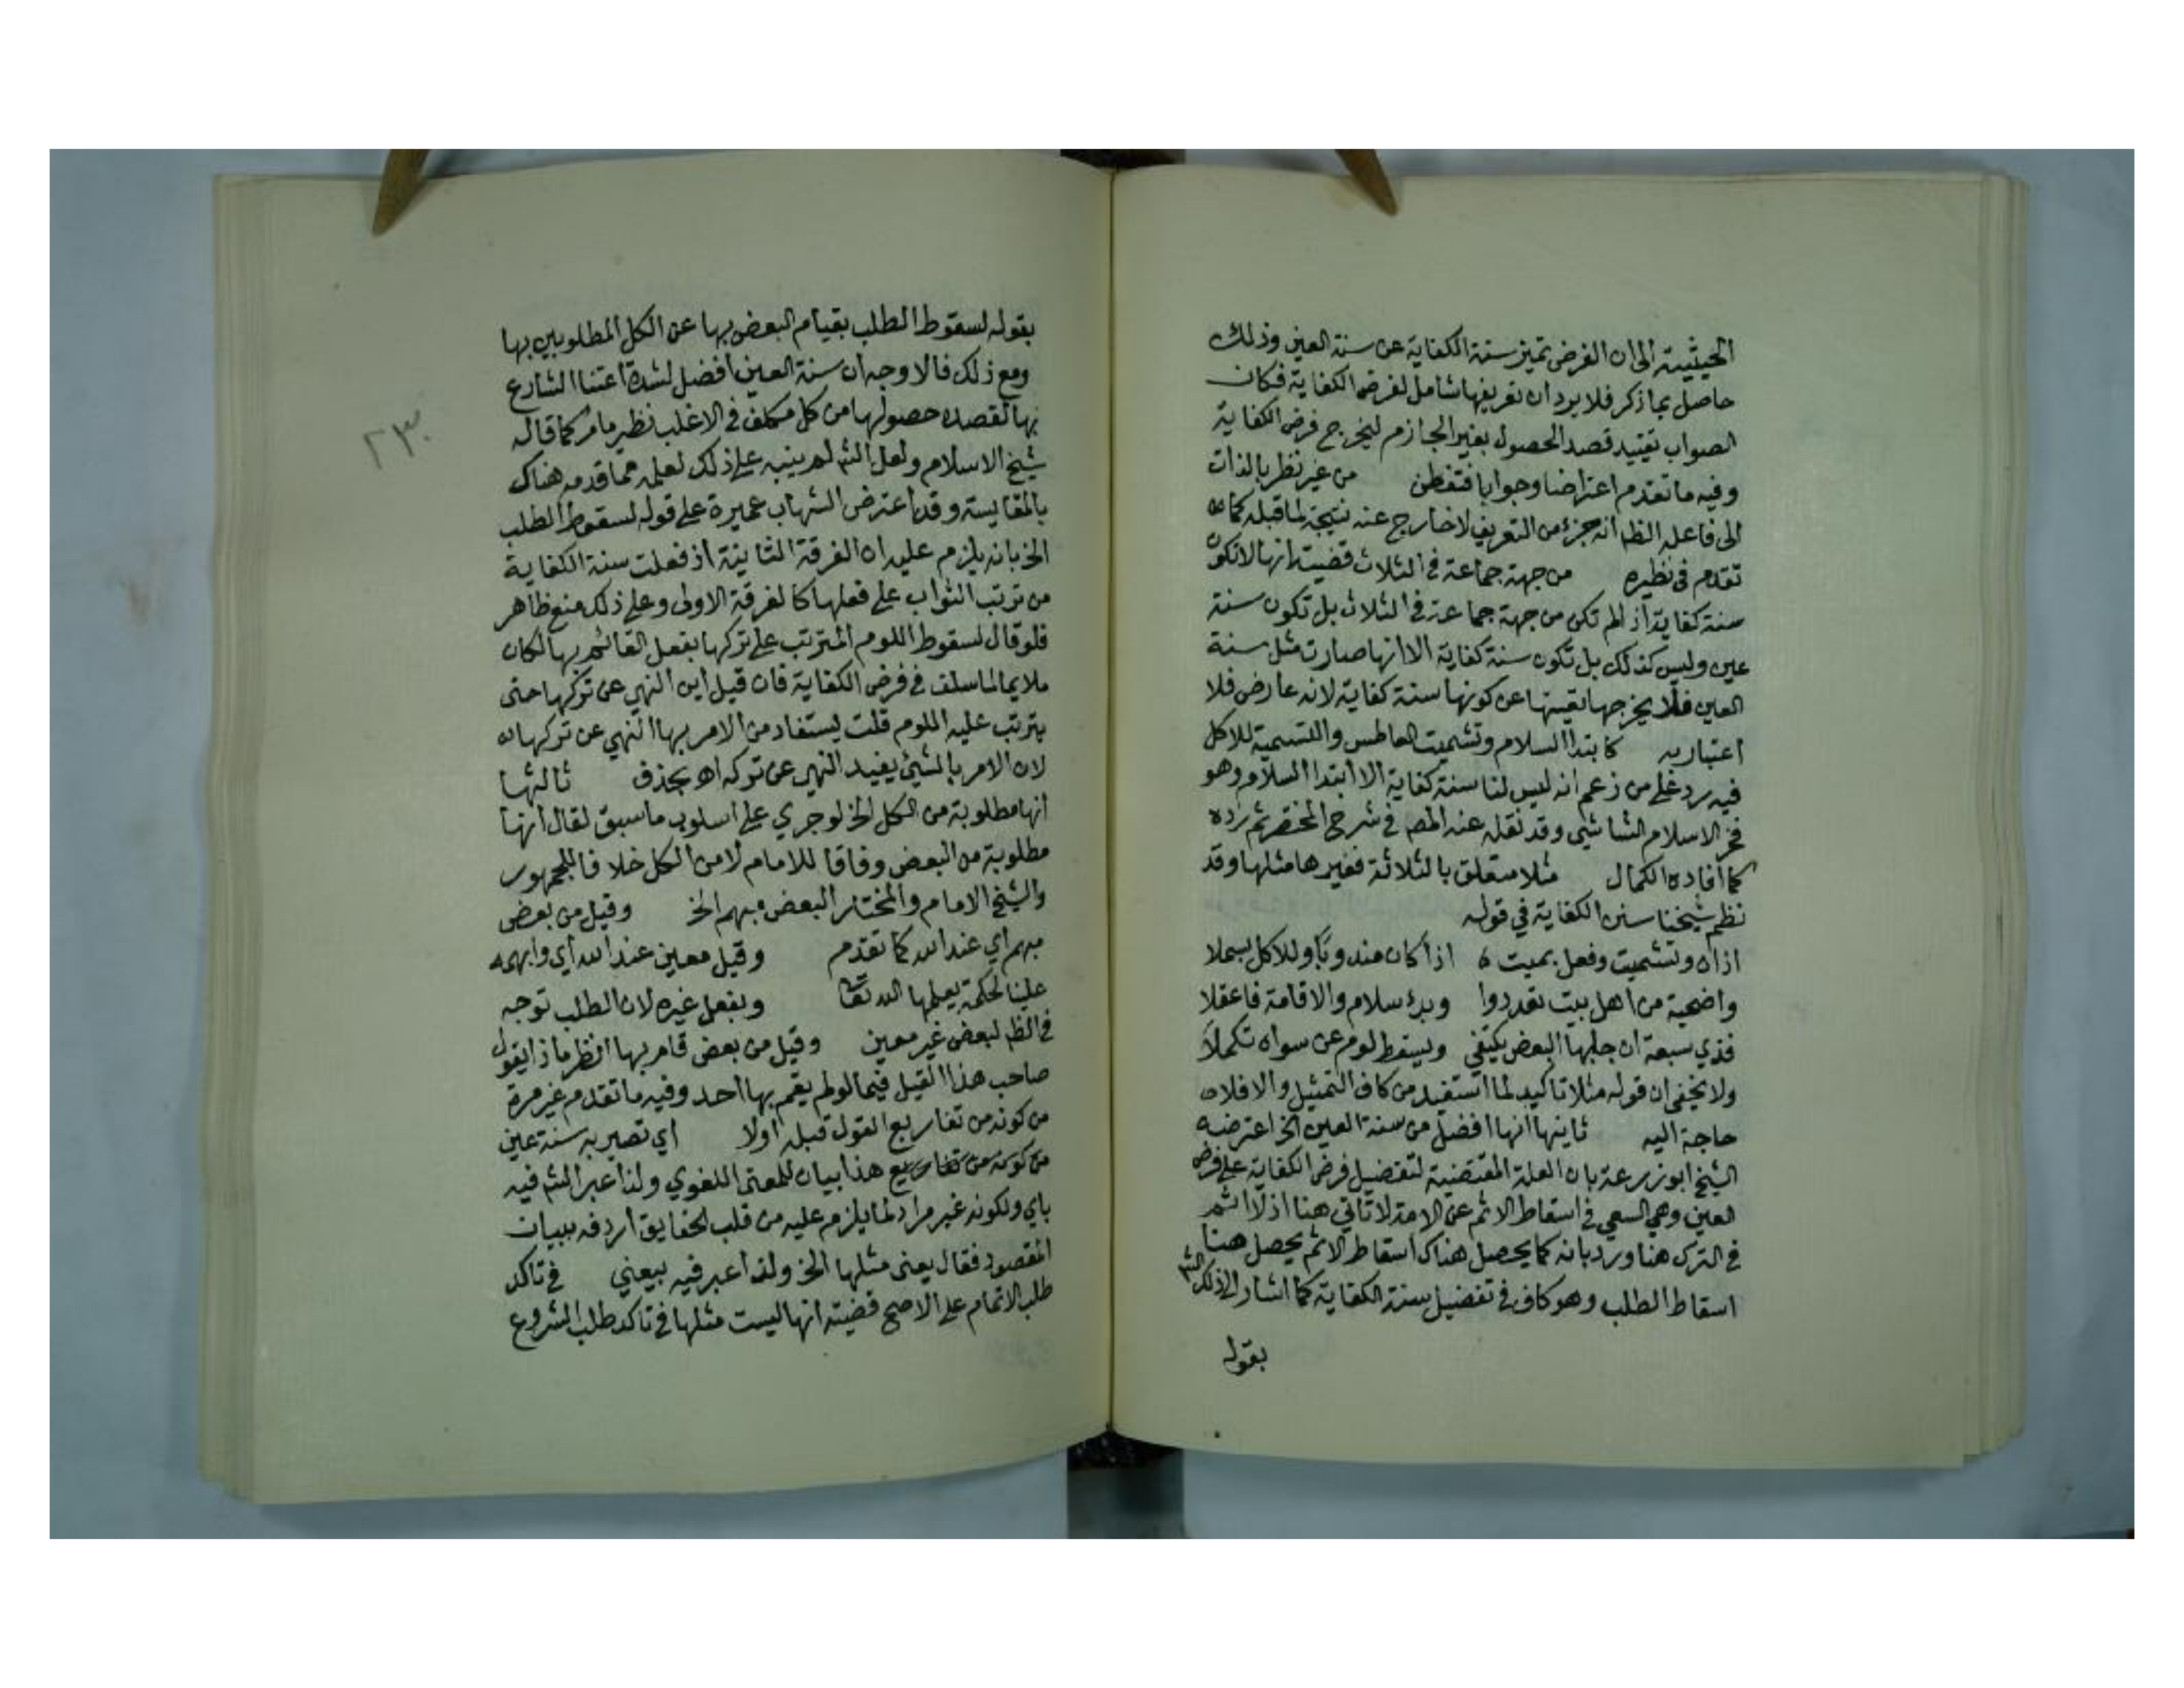 الحيثية الى ان الفرض تميز سنة الكفاية عن سنة العين وذلك
حاصل بما ذكر فلا يرد ان تعريفها شامل لفرض الكفاية فكان
الصواب تقييد قصد الحصول بغير الجازم ليخرج فرض الكفاية
وفيه ما تقدم اعتراضا وجوابا فتفطن من غير نظر بالذات
الى فاعله الظ انه جزء من التعريف لا خارج عنه نتيجة لما قبله كما
تقدم في نظيره من جهة جماعة في الثلاث قضيته انها لا تكون
سنة كفاية اذ لم تكن من جهة جماعة في الثلاث بل تكون سنة
عين وليس كذلك بل تكون سنة كفاية الا انها صارت مثل سنة
العين فلا يخرجها تعينها عن كونها سنة كفاية لانه عارض فلا
اعتبار به كابتدا السلام وتشميت العاطس والتسمية للاكل
فيه رد على من زعم انه ليس لنا سنة كفاية الا ابتدا السلام وهو
فخر الاسلام الشاشي وقد نقله عنه المص في شرح المختصر ثم رده
كما افاده الكمال مثلا متعلق بالثلاثة فغيرها مثلها وقد
نظم شيخنا سنن الكفاية في قوله
اذان وتشميت وفعل بميت ه اذا كان مندوبا وللاكل بسملا
واضحية من اهل بيت تعددوا وبدء سلام والاقامة فاعقلا
فذي سبعة ان جابها البعض يكتفي ويسقط لوم عن سواه تكملا
ولا يخفى ان قوله مثلا تاكيد لما استفيد من كاف التمثيل والا فلا
حاجة اليه ثانيها انها افضل من سنة العين الخ اعترضه
الشيخ ابو زرعة بان العلة المقتضية لتفضيل فرض الكفاية على فرض
العين وهي السعي في اسقاط الاثم عن الامة لا تاتي هنا اذ لا اثم
في الترك هنا ورد بانه كما يحصل هناك اسقاط الاثم يحصل هنا
اسقاط الطلب وهو كاف في تفضيل سنة الكفاية كما اشار الى ذلك الش
بقوله
بقوله لسقوط الطلب بقيام البعض بها عن الكل المطلوبين بها
ومع ذلك فالاوجه ان سنة العين افضل لشدة اعتنا الشارع
بها لقصده حصولها من كل مكلف في الاغلب نظير ما مر كما قاله
شيخ الاسلام ولعل الش لم ينبه على ذلك لعلمه مما قدمه هناك
بالمقايسة وقد اعترض الشهاب عميرة على قوله لسقوط الطلب
الخ بانه يلزم عليه ان الفرقة الثانية اذ فعلت سنة الكفاية
من ترتب الثواب على فعلها كالفرقة الاولى وعلى ذلك منع ظاهر
فلو قال لسقوط اللوم المترتب على تركها بفعل القائم بها لكان
ملايما لما سلف في فرض الكفاية فان قيل اين النهي عن تركها حتى
يترتب عليه اللوم قلت يستفاد من الامر بها النهي عن تركها
لان الامر بالشيئ يفيد النهي عن تركه اه بحذف ثالثها
انها مطلوبة من الكل الخ لو جري على اسلوب ما سبق لقال انها
مطلوبة من البعض وفاقا للامام لا من الكل خلافا للجمهور
والشيخ الامام والمختار البعض مبهم الخ وقيل من بعض
مبهم اي عند الله كما تقدم وقيل معين عند الله اي وابهمه
علينا لحكمة يعلمها الله تعا وبفعل غيره لان الطلب توجه
في الظ لبعض غير معين وقيل من بعض قام بها انظر ماذا يقول
صاحب هذا القيل فيما لو لم يقم بها احد وفيه ما تقدم غير مرة
من كونه من تفاريع القول قبله اولا اي تصير به سنة عين
من كونه من تفاريع هذا بيان للمعنى اللغوي ولذا عبر الش فيه
باي ولكونه غير مراد لما يلزم عليه من قلب الحقايق اردفه ببيان
المقصود فقال يعنى مثلها الخ ولذا عبر فيه بيعني في تاكد
طلب الاتمام على الاصح قضيته انها ليست مثلها في تاكد طلب الشروع
٢٣